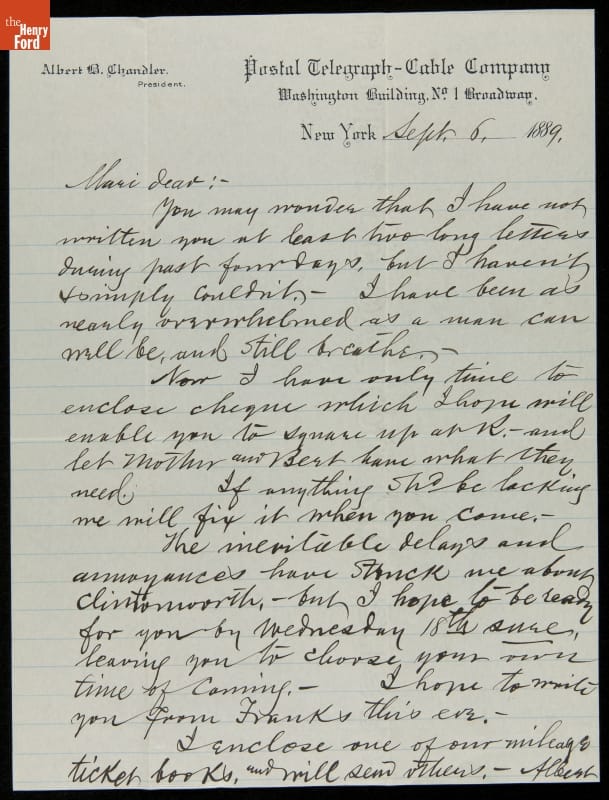 the
Henry
Ford
Albert B. Chandler.
President.
Postal Telegraph-Cable Company
Washington Building, No 1 Broadway.
New York Sept. 6, 1889.
Mari dear:-
You may wonder that I have not
written you at least two long letters
during past four days, but I haven't
& simply couldn't.- I have been as
nearly overwhelmed as a man can
well be, and still breathe.-
Now I have only time to
enclose cheque which I hope will
enable you to square up at K.- and
let Mother and Bert have what they
need. If anything shd be lacking
we will fix it when you come.-
The inevitable delays and
annoyances have struck me about
Clintonworth,- but I hope to be ready
for you by Wednesday 18th sure,
leaving you to choose your own
time of coming.- I hope to write
you from Franks this eve.-
I enclose one of our mileage
ticket books, and will send others.- Albert